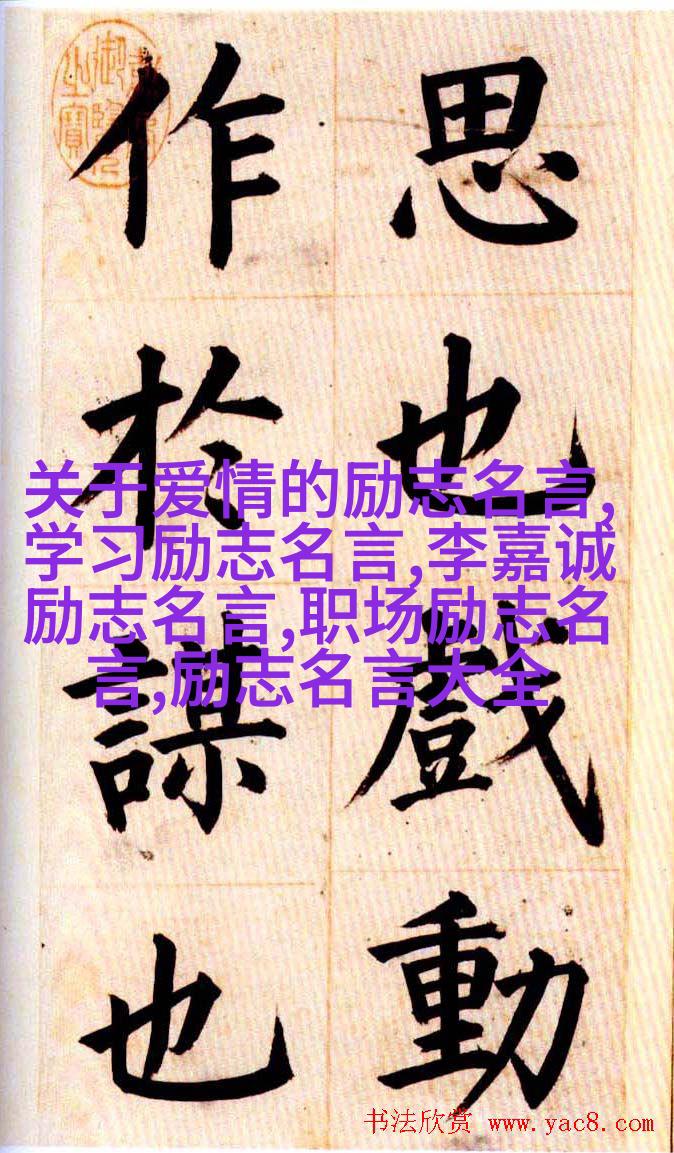 思也戲動
作於謀也
关于爱情的励志名言,
学习励志名言,李嘉诚
励志名言,职场励志名
言,励志名言大全
书法欣赏 www.yac8.com